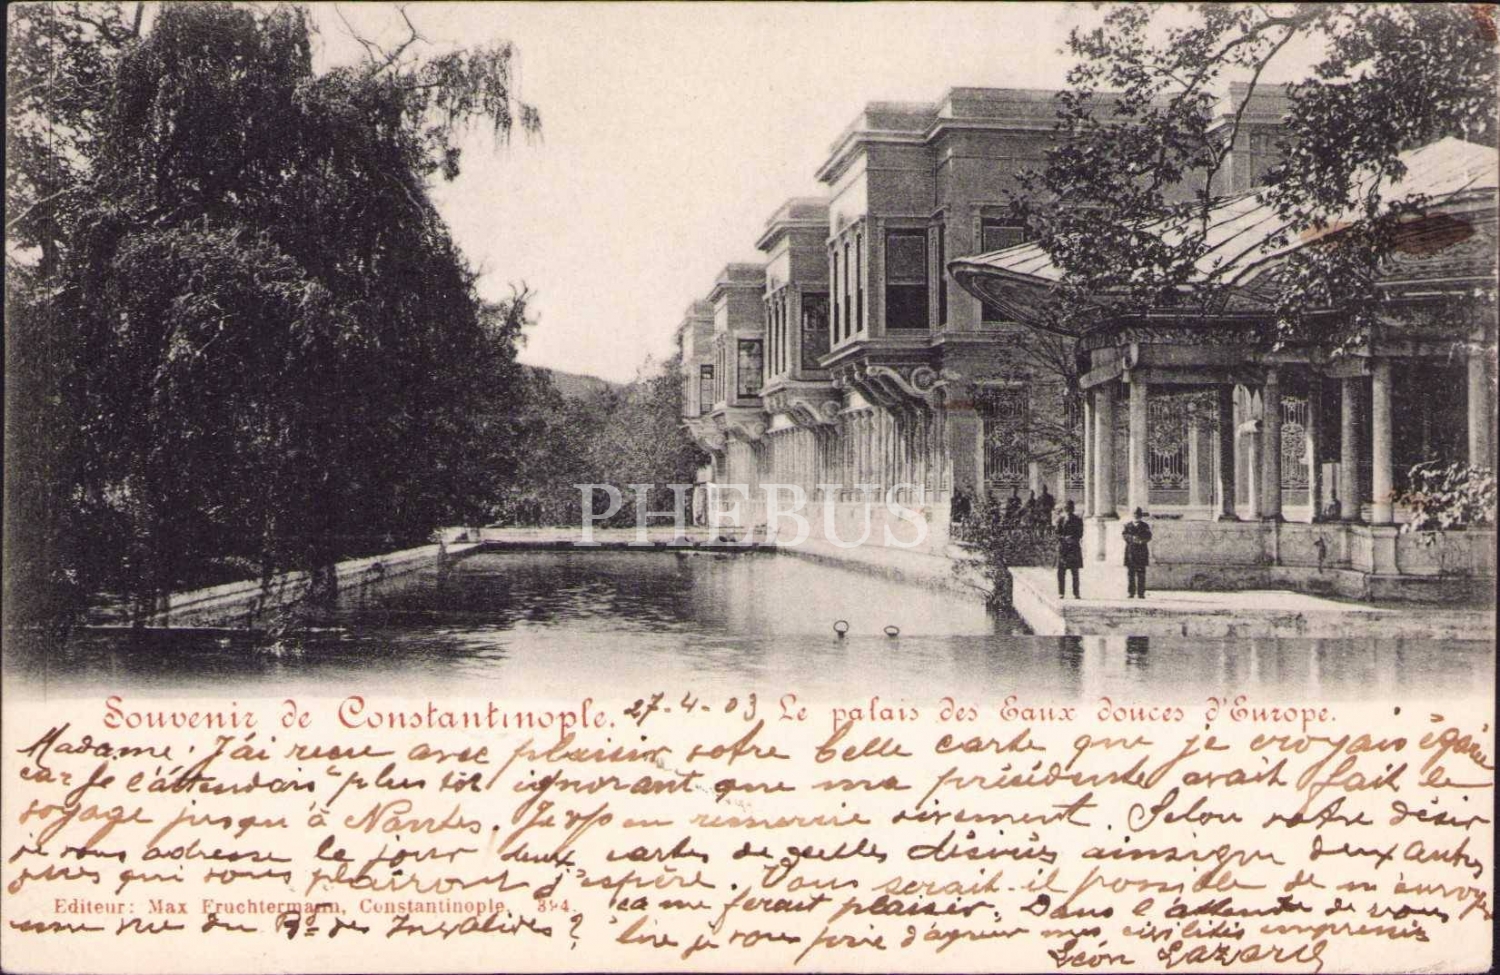 PHEBUS
Souvenir de Constantinople. 27-4-03 Le palais des Eaux douces d'Europe.
Madame. J'ai reçu avec plaisir votre belle carte que je croyais égarée
car je l'attendais plus tôt ignorant que ma précédente avait fait le
voyage jusqu'à Nantes. Je vous en remercie vivement. Selon votre désir
je vous adresse le jour deux cartes de celles désirées ainsique deux autres
qui vous plairont j'espère. Vous serait-il possible de m'envoyer
Editeur: Max Fruchtermann, Constantinople. 394.
ça me ferait plaisir. Dans l'attente de vous
une vue du Bd des Invalides ?
lire je vous prie d'agréer mes civilités empressées
Léon Lazard